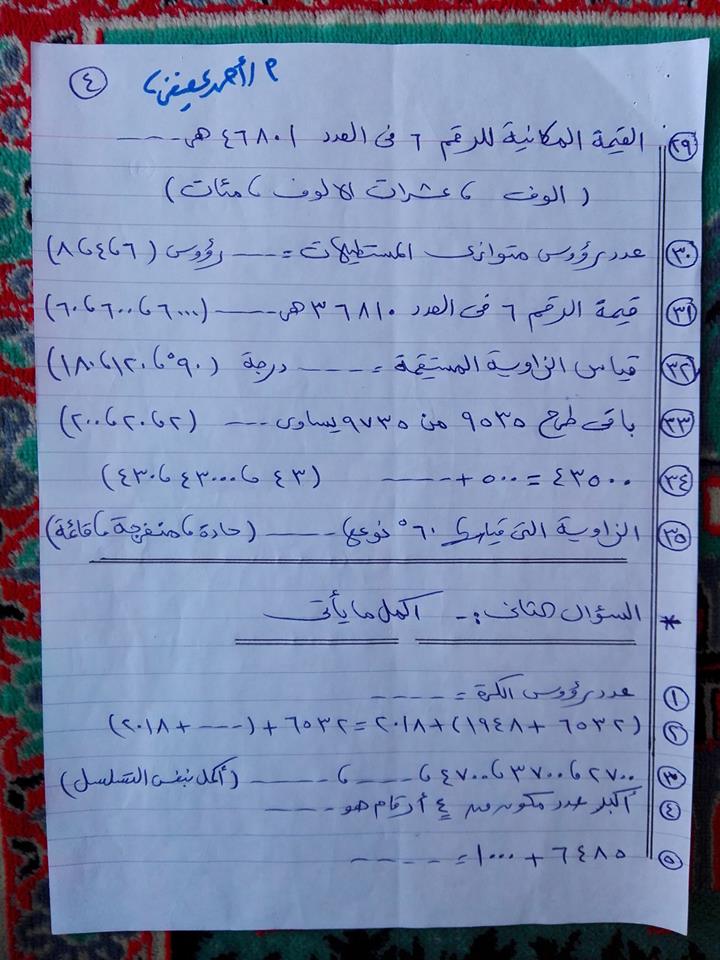 ٤
م/ أحمد عفيفى
٢٩ القيمة المكانية للرقم ٦ فى العدد ٤٦٨٠١ هى ----
( الوف ، عشرات الالوف ، مئات )
٣٠ عدد رؤوس متوازى المستطيلات = ---- رؤوس (٦ ، ٤ ، ٨)
٣١ قيمة الرقم ٦ فى العدد ٣٦٨١٠ هى ---- (٦٠٠٠ ، ٦٠٠ ، ٦٠)
٣٢ قياس الزاوية المستقيمة = ---- درجة (٩٠° ، ١٢٠ ، ١٨٠)
٣٣ باقى طرح ٩٥٣٥ من ٩٧٣٥ يساوى ---- (٢ ، ٢٠ ، ٢٠٠)
٣٤ ٤٣٥٠٠ = ٥٠٠ + ---- (٤٣ ، ٤٣٠٠٠ ، ٤٣٠)
٣٥ الزاوية التى قياسها ٦٠° نوعها ---- (حادة ، منفرجة ، قائمة)
* السؤال الثانى :- اكمل ما يأتى
١ عدد رؤوس الكرة = ----
٢ (٦٥٣٢ + ١٩٤٨) + ٢٠١٨ = ٦٥٣٢ + (---- + ٢٠١٨)
٣ ٢٧٠٠ ، ٣٧٠٠ ، ٤٧٠٠ ، ---- ، ---- (أكمل بنفس التسلسل)
٤ أكبر عدد مكون من ٤ أرقام هو ----
٥ ٦٤٨٥ + ١٠٠٠ = ----